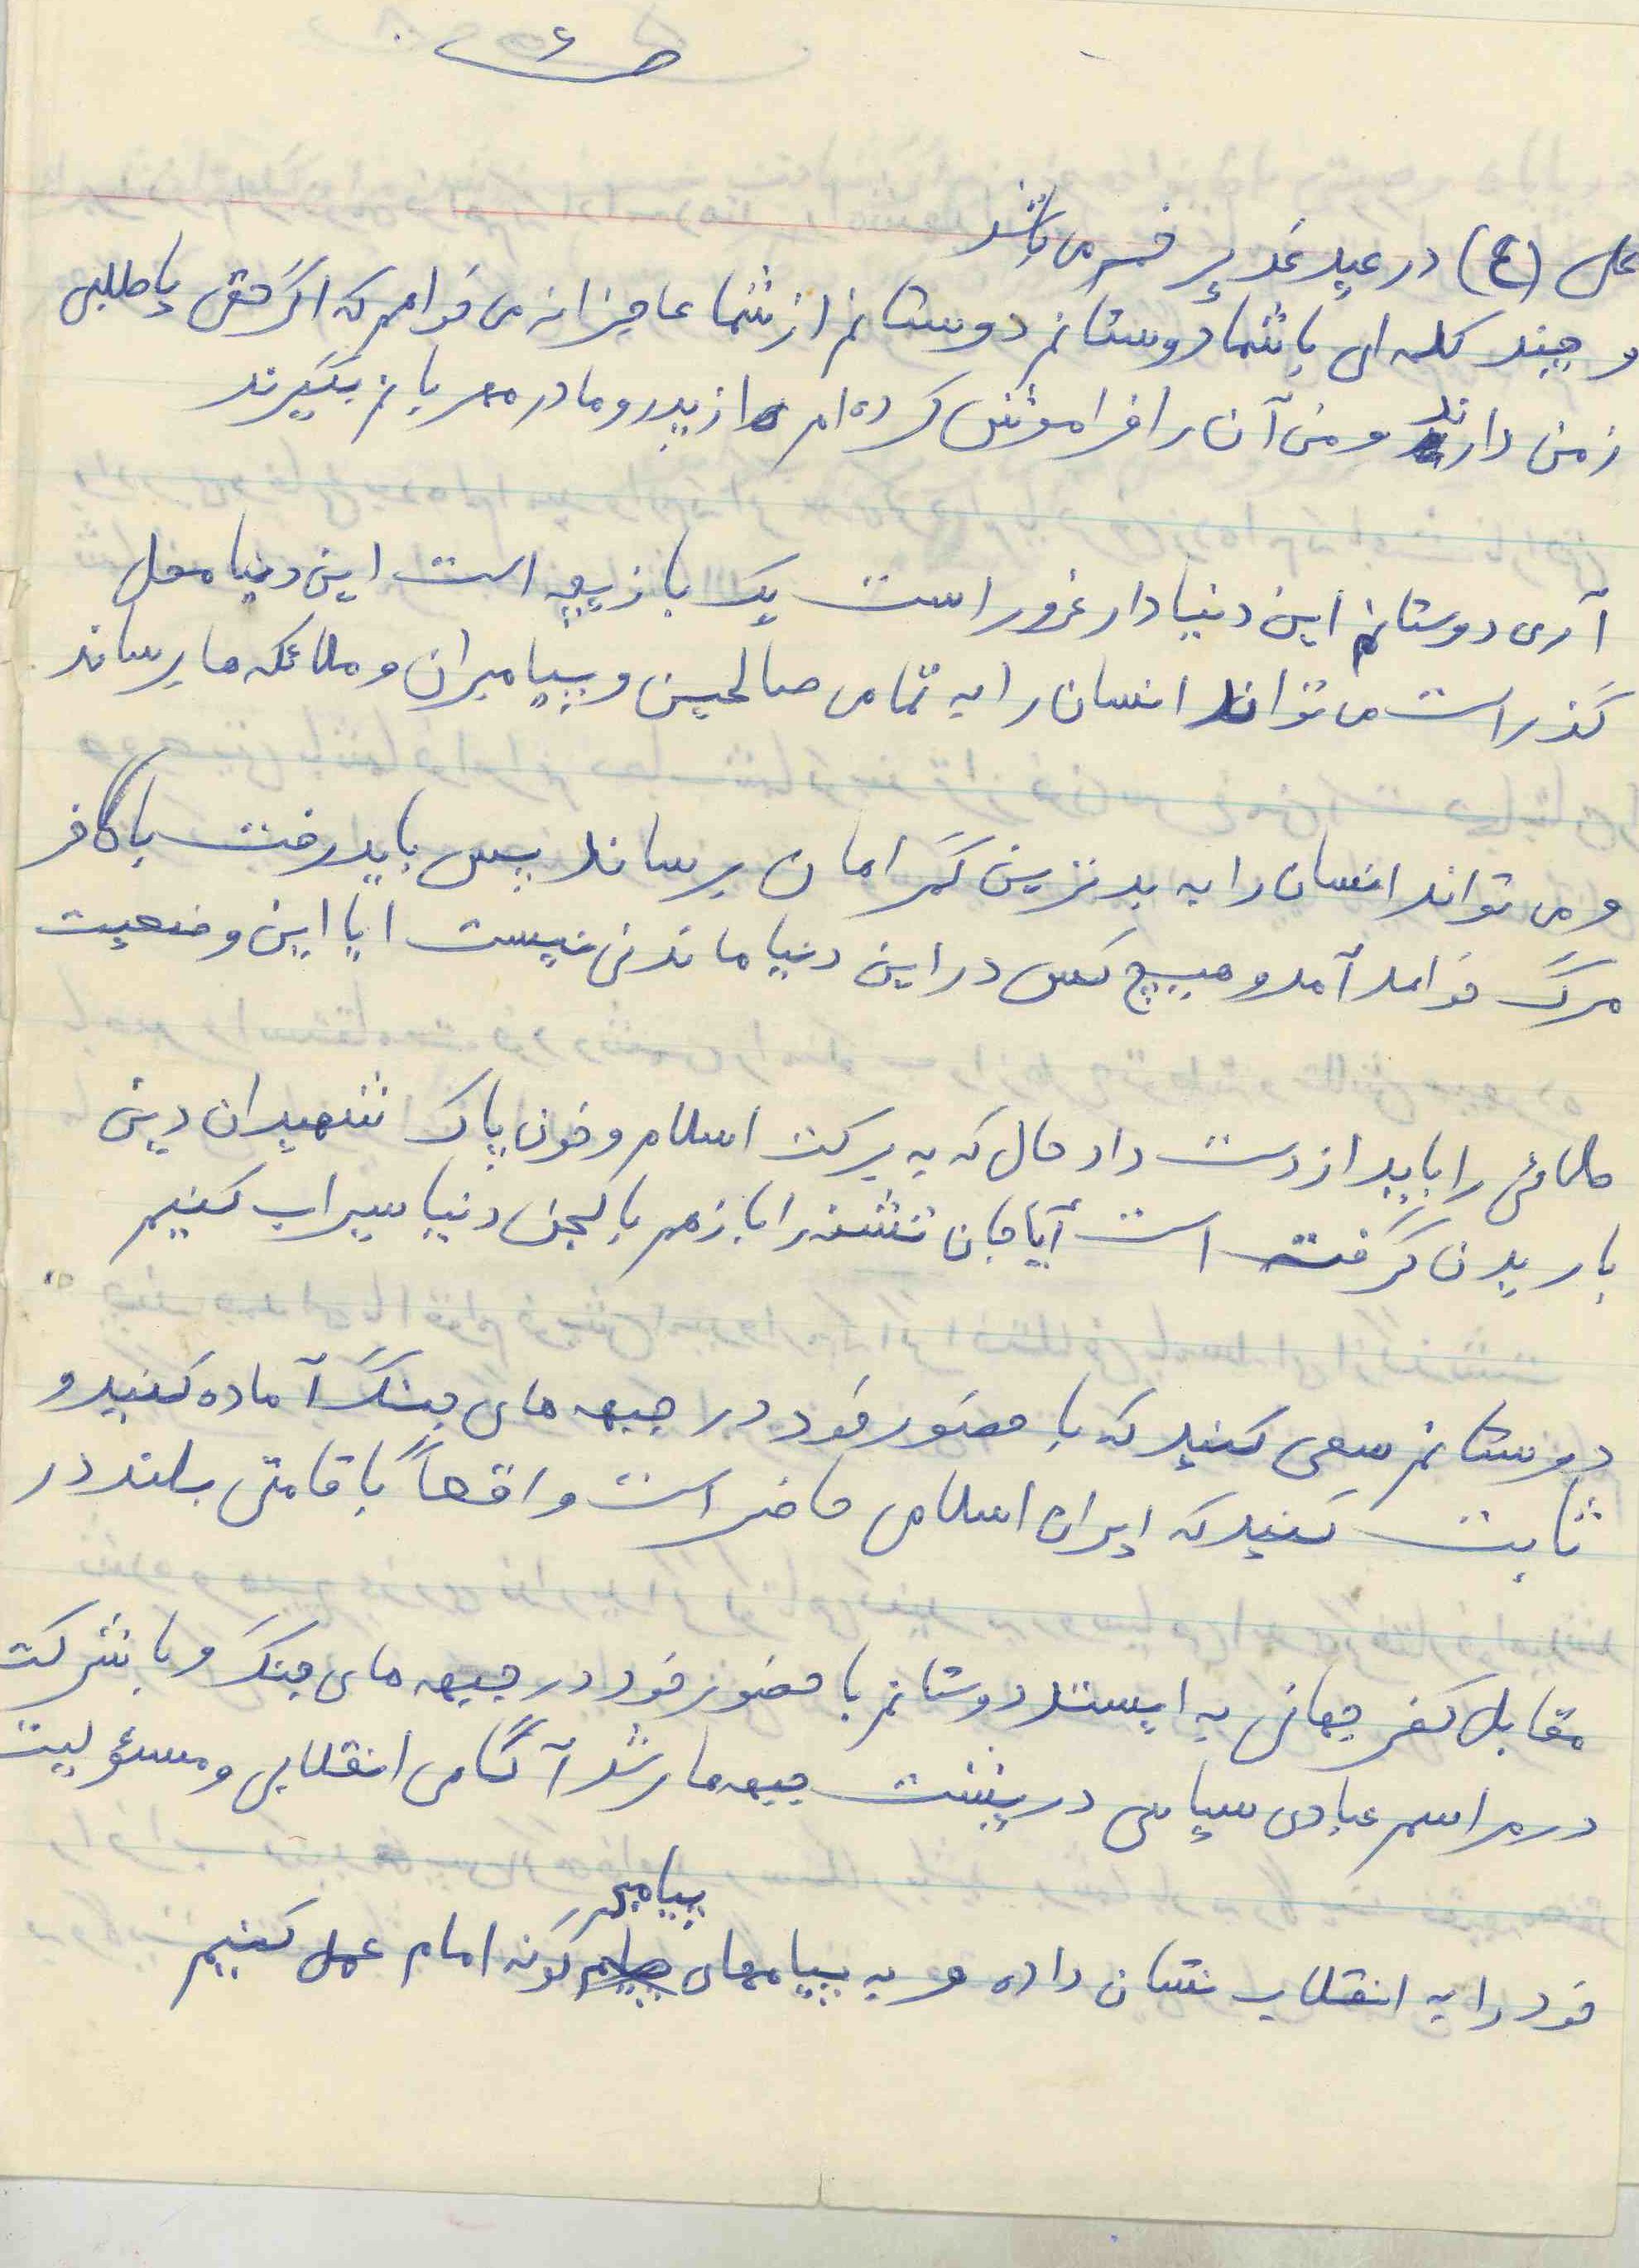 ص ۶
علی (ع) در عید غدیر خم می باشد
و چند کلمه ای با شما دوستانم دوستانم از شما عاجزانه می خواهم که اگر حقی یا طلبی
زمن دارند و من آن را فراموش کرده ام از پدر و مادر مهربانم بگیرند
آری دوستانم این دنیا دار غرور است یک بازیچه است این دنیا محل
گذر است می تواند انسان را به تمامی صالحین و پیامبران و ملائکه ها برساند
و می تواند انسان را به بدترین گمراهان برساند پس باید رفت بالاخر
مرگ خواهد آمد و هیچ کس در این دنیا ماندنی نیست ایا این وضعیت
طلائی را باید از دست داد حال که به برکت اسلام و خون پاک شهیدان دینی
باریدن گرفته است آیا جان تشنه را با زهر یا لجن دنیا سیراب کنیم
دوستانم سعی کنید که با حضور خود در جبهه های جنگ آماده کنید و
ثابت کنید که ایران اسلامی حاضر است واقعاً با قامتی بلند در
مقابل کفر جهانی به ایستد دوستانم با حضور خود در جبهه های جنگ و با شرکت
در مراسم عبادی سیاسی در پشت جبهه ها رشد آگاهی انقلابی و مسؤلیت
خود را به انقلاب نشان داده و به پیامهای پیامبر گونه امام عمل کنیم